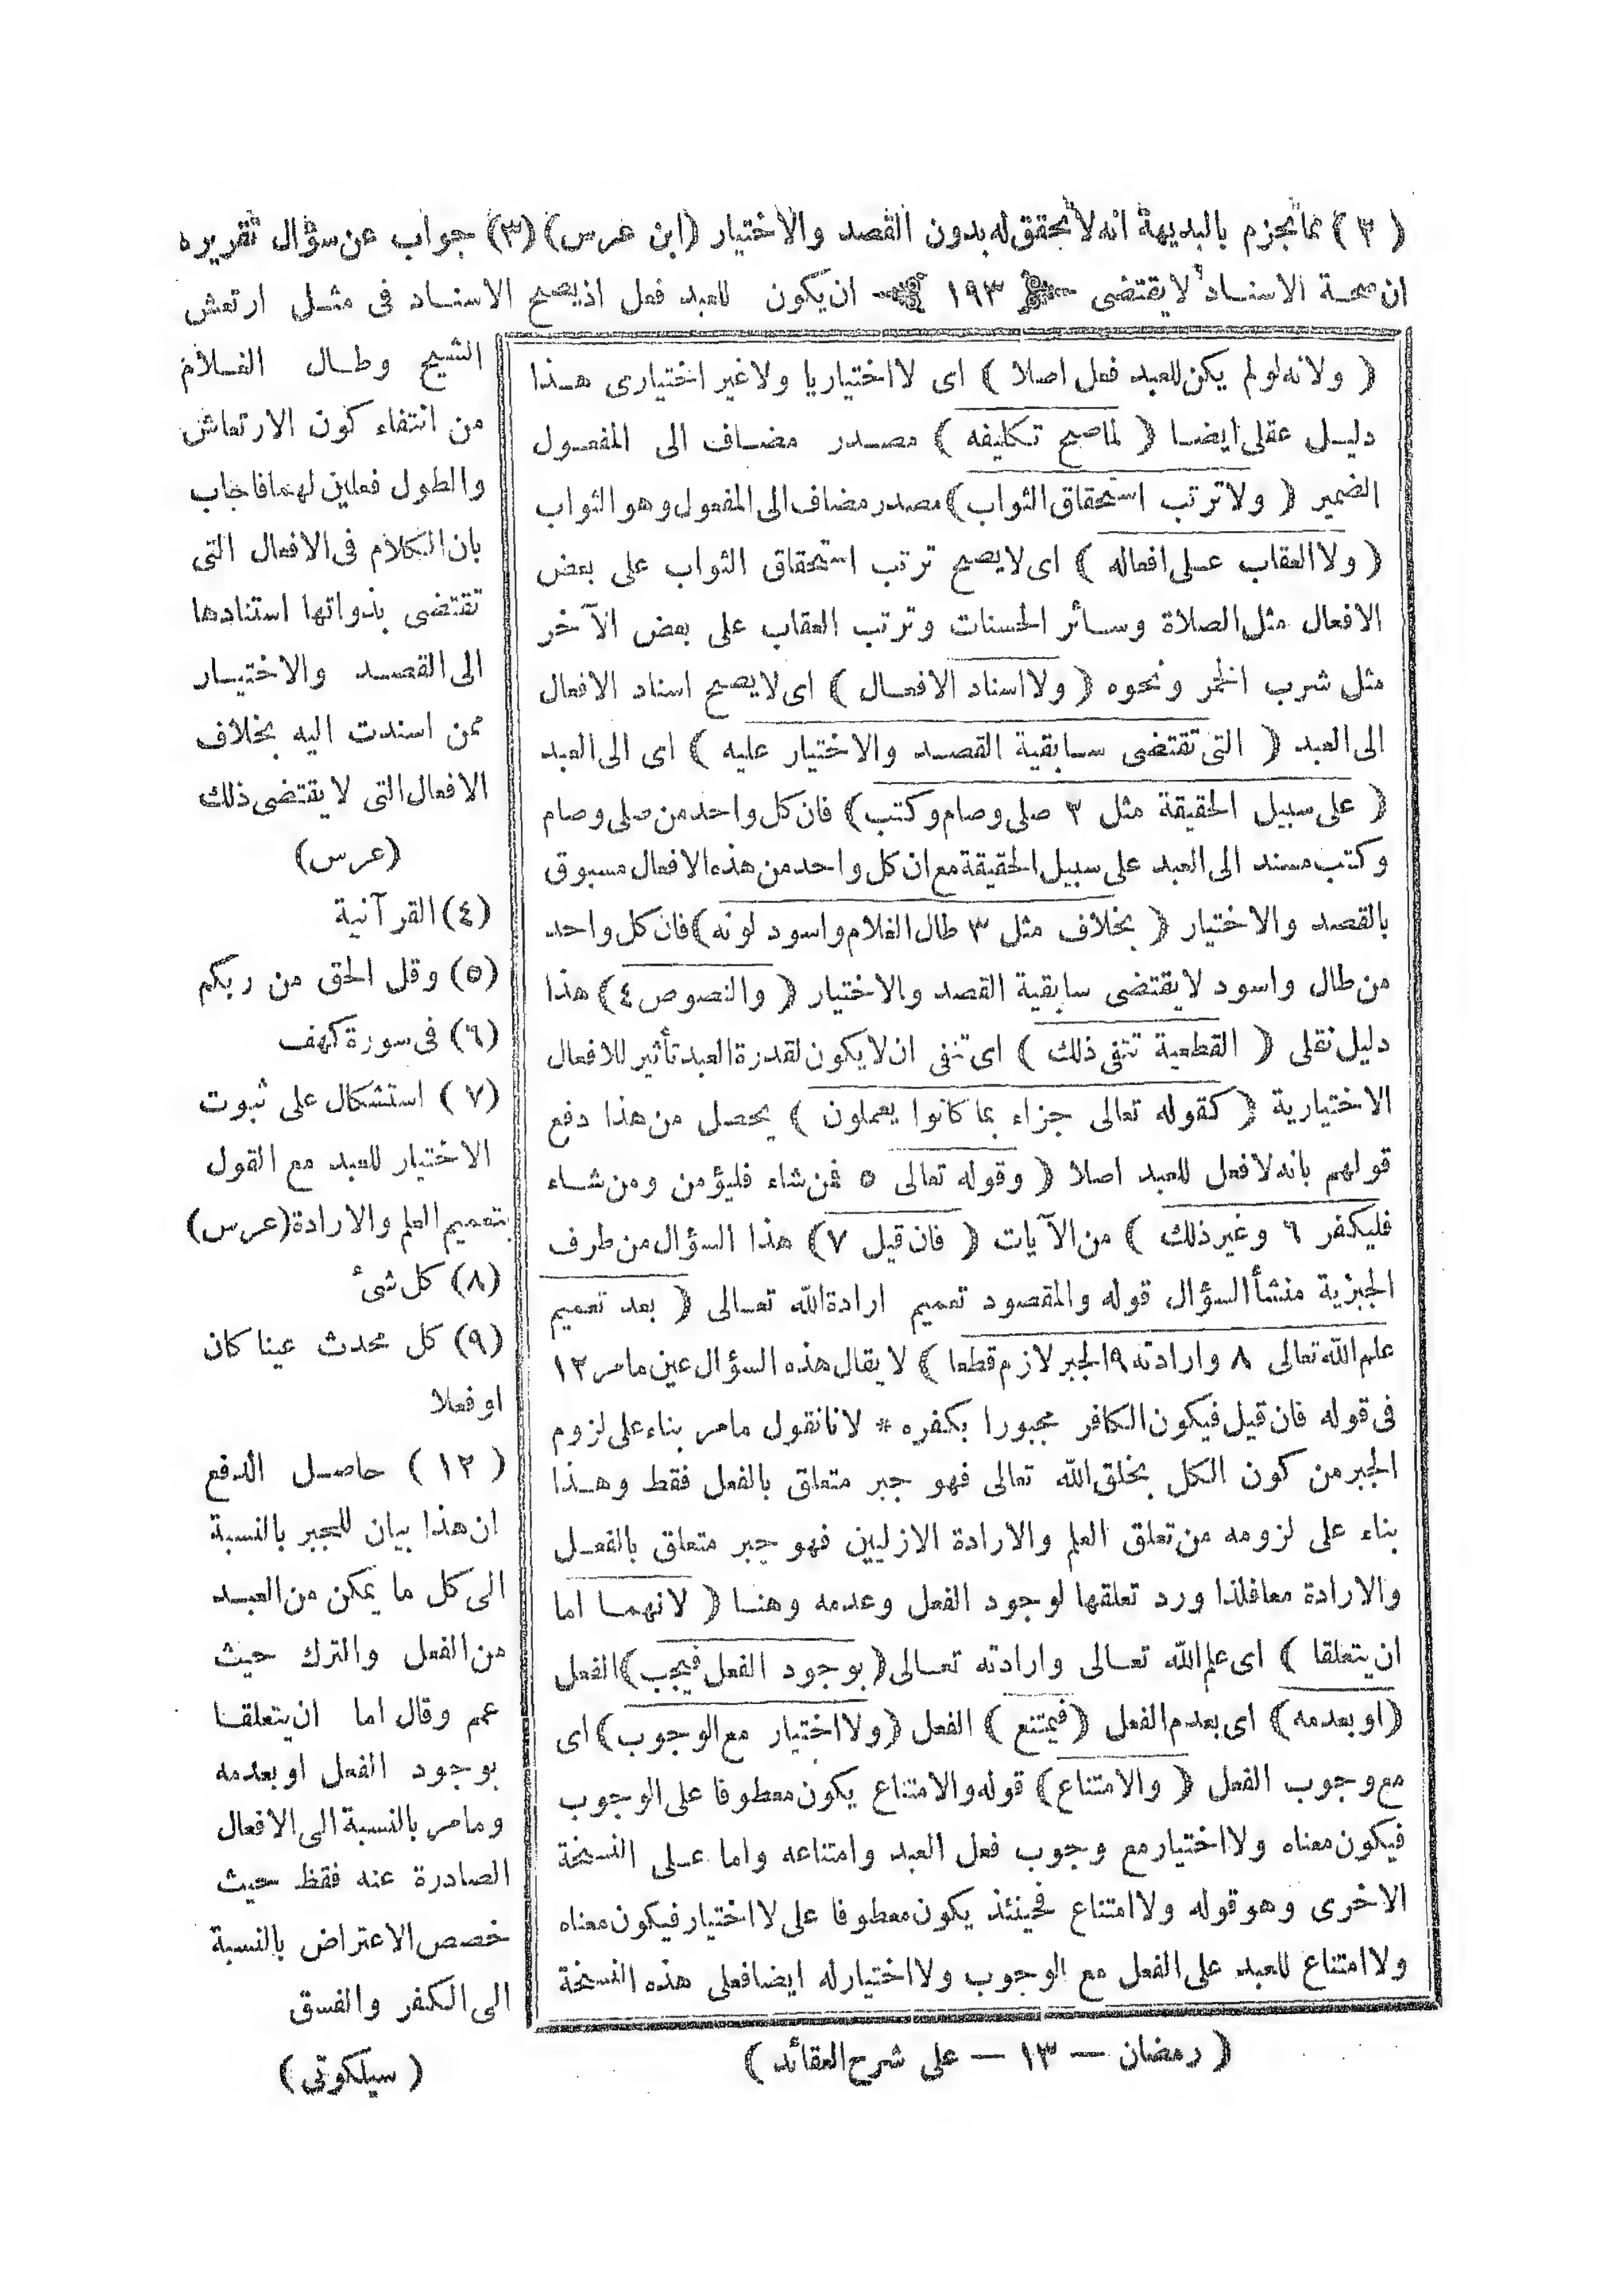 ( ٣ ) مما نجزم بالبديهة انه لا تحقق له بدون القصد والاختيار (ابن عرس) (٣) جواب عن سؤال تقريره
ان صحة الاسناد لا يقتضى ﴿ ١٩٣ ﴾ ان يكون للعبد فعل اذ يصح الاسناد فى مثل ارتعش
الشيخ وطال الغلام
من انتفاء كون الارتعاش
والطول فعلين لهما فاجاب
بان الكلام فى الافعال التى
تقتضى بذواتها استنادها
الى القصد والاختيار
ممن اسندت اليه بخلاف
الافعال التى لا يقتضى ذلك
(عرس)
(٤) القرآنية
(٥) وقل الحق من ربكم
(٦) فى سورة كهف
(٧) استشكال على ثبوت
الاختيار للعبد مع القول
بتعميم العلم والارادة (عرس)
(٨) كل شئ
(٩) كل محدث عينا كان
او فعلا
( ١٢ ) حاصل الدفع
ان هذا بيان للجبر بالنسبة
الى كل ما يمكن من العبد
من الفعل والترك حيث
عمم وقال اما ان يتعلقا
بوجود الفعل او بعدمه
وما مر بالنسبة الى الافعال
الصادرة عنه فقط حيث
خصص الاعتراض بالنسبة
الى الكفر والفسق
( سيلكوتى )
( ولانه لو لم يكن للعبد فعل اصلا ) اى لا اختياريا ولا غير اختيارى هذا
دليل عقلى ايضا ( لما صح تكليفه ) مصدر مضاف الى المفعول
الضمير ( ولا ترتب استحقاق الثواب ) مصدر مضاف الى المفعول وهو الثواب
( ولا العقاب على افعاله ) اى لا يصح ترتب استحقاق الثواب على بعض
الافعال مثل الصلاة وسائر الحسنات وترتب العقاب على بعض الآخر
مثل شرب الخمر ونحوه ( ولا اسناد الافعال ) اى لا يصح اسناد الافعال
الى العبد ( التى تقتضى سابقية القصد والاختيار عليه ) اى الى العبد
( على سبيل الحقيقة مثل ٣ صلى وصام وكتب ) فان كل واحد من صلى وصام
وكتب مسند الى العبد على سبيل الحقيقة مع ان كل واحد من هذه الافعال مسبوق
بالقصد والاختيار ( بخلاف مثل ٣ طال الغلام واسود لونه ) فان كل واحد
من طال واسود لا يقتضى سابقية القصد والاختيار ( والنصوص ٤ ) هذا
دليل نقلى ( القطعية تنفى ذلك ) اى تنفى ان لا يكون لقدرة العبد تأثير للافعال
الاختيارية ( كقوله تعالى جزاء بما كانوا يعملون ) يحصل من هذا دفع
قولهم بانه لا فعل للعبد اصلا ( وقوله تعالى ٥ فمن شاء فليؤمن ومن شاء
فليكفر ٦ وغير ذلك ) من الآيات ( فان قيل ٧ ) هذا السؤال من طرف
الجبرية منشأ السؤال قوله والمقصود تعميم ارادة الله تعالى ( بعد تعميم
علم الله تعالى ٨ وارادته ٩ الجبر لازم قطعا ) لا يقال هذه السؤال عين ما مر ١٢
فى قوله فان قيل فيكون الكافر مجبورا بكفره * لانا نقول ما مر بناء على لزوم
الجبر من كون الكل بخلق الله تعالى فهو جبر متعلق بالفعل فقط وهذا
بناء على لزومه من تعلق العلم والارادة الازليين فهو جبر متعلق بالفعل
والارادة معا فلذا ورد تعلقها لوجود الفعل وعدمه وهنا ( لانهما اما
ان يتعلقا ) اى علم الله تعالى وارادته تعالى ( بوجود الفعل فيجب ) الفعل
( او بعدمه ) اى بعدم الفعل ( فيمتنع ) الفعل ( ولا اختيار مع الوجوب ) اى
مع وجوب الفعل ( والامتناع ) قوله والامتناع يكون معطوفا على الوجوب
فيكون معناه ولا اختيار مع وجوب فعل العبد وامتناعه واما على النسخة
الاخرى وهو قوله ولا امتناع فحينئذ يكون معطوفا على لا اختيار فيكون معناه
ولا امتناع للعبد على الفعل مع الوجوب ولا اختيار له ايضا فعلى هذه النسخة
( رمضان — ١٣ — على شرح العقائد )